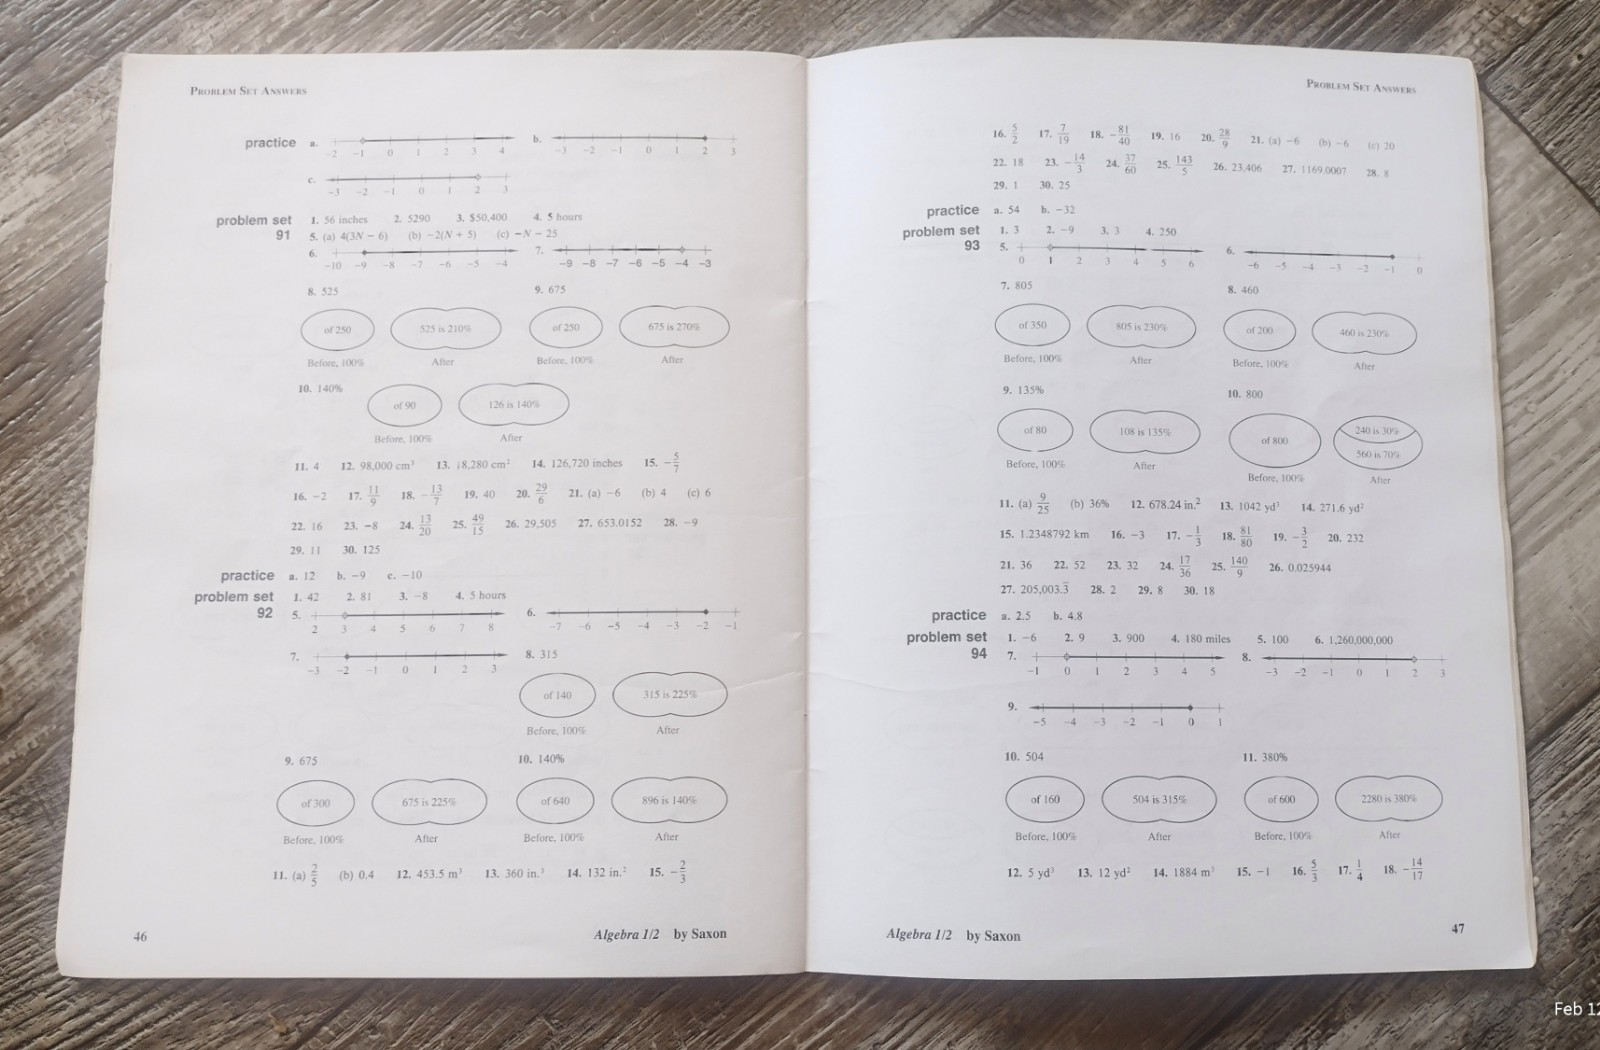 PROBLEM SET ANSWERS
practice a. -2 -1 0 1 2 3 4 b. -3 -2 -1 0 1 2 3
c. -3 -2 -1 0 1 2 3
problem set 91 1. 56 inches 2. 5290 3. $50,400 4. 5 hours
5. (a) 4(3N − 6) (b) −2(N + 5) (c) −N − 25
6. -10 -9 -8 -7 -6 -5 -4 7. -9 -8 -7 -6 -5 -4 -3
8. 525 9. 675
of 250 525 is 210% of 250 675 is 270%
Before, 100% After Before, 100% After
10. 140%
of 90 126 is 140%
Before, 100% After
11. 4 12. 98,000 cm³ 13. 18,280 cm² 14. 126,720 inches 15. −5/7
16. −2 17. 11/9 18. −13/7 19. 40 20. 29/6 21. (a) −6 (b) 4 (c) 6
22. 16 23. −8 24. 13/20 25. 49/15 26. 29,505 27. 653.0152 28. −9
29. 11 30. 125
practice a. 12 b. −9 c. −10
problem set 92 1. 42 2. 81 3. −8 4. 5 hours
5. 2 3 4 5 6 7 8 6. -7 -6 -5 -4 -3 -2 -1
7. -3 -2 -1 0 1 2 3 8. 315
of 140 315 is 225%
Before, 100% After
9. 675 10. 140%
of 300 675 is 225% of 640 896 is 140%
Before, 100% After Before, 100% After
11. (a) 2/5 (b) 0.4 12. 453.5 m³ 13. 360 in.³ 14. 132 in.² 15. −2/3
46 Algebra 1/2 by Saxon
PROBLEM SET ANSWERS
16. 5/2 17. 7/19 18. −81/40 19. 16 20. 28/9 21. (a) −6 (b) −6 (c) 20
22. 18 23. −14/3 24. 37/60 25. 143/5 26. 23,406 27. 1169.0007 28. 8
29. 1 30. 25
practice a. 54 b. −32
problem set 93 1. 3 2. −9 3. 3 4. 250
5. 0 1 2 3 4 5 6 6. -6 -5 -4 -3 -2 -1 0
7. 805 8. 460
of 350 805 is 230% of 200 460 is 230%
Before, 100% After Before, 100% After
9. 135% 10. 800
of 80 108 is 135% of 800 240 is 30% 560 is 70%
Before, 100% After Before, 100% After
11. (a) 9/25 (b) 36% 12. 678.24 in.² 13. 1042 yd³ 14. 271.6 yd²
15. 1.2348792 km 16. −3 17. −1/3 18. 81/80 19. −3/2 20. 232
21. 36 22. 52 23. 32 24. 17/36 25. 140/9 26. 0.025944
27. 205,003.3̅ 28. 2 29. 8 30. 18
practice a. 2.5 b. 4.8
problem set 94 1. −6 2. 9 3. 900 4. 180 miles 5. 100 6. 1,260,000,000
7. -1 0 1 2 3 4 5 8. -3 -2 -1 0 1 2 3
9. -5 -4 -3 -2 -1 0 1
10. 504 11. 380%
of 160 504 is 315% of 600 2280 is 380%
Before, 100% After Before, 100% After
12. 5 yd³ 13. 12 yd² 14. 1884 m³ 15. −1 16. 5/3 17. 1/4 18. −14/17
Algebra 1/2 by Saxon 47
Feb 12